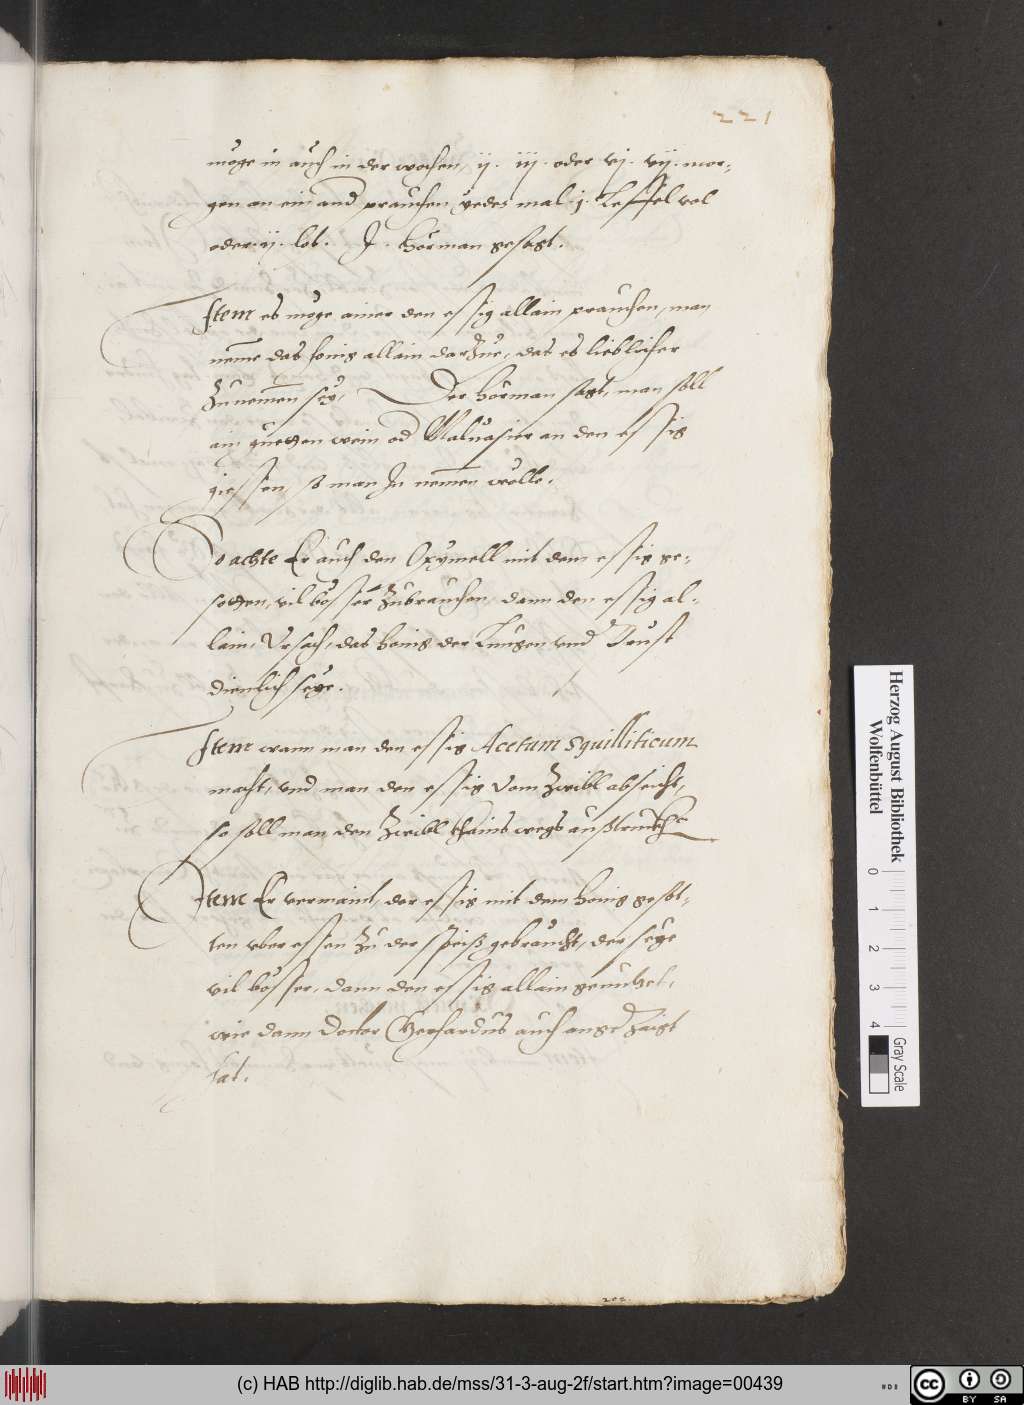 221
möge in auch in der wochen, ij. iij. oder vj. vij. mor-
gen an ein and prauchen yedes mal .j. Leffel vol
oder .ij. lot. J. Hörman gesagt.
Item es möge ainer den essig allain prauchen, man
neme das honig allain darzue, das es lieblicher
Zunemen sey, Der Hörman sagt, man soll
ain guetten wein od Maluasier an den essig
giessen, so man In nemen wölle.
So achte Er auch den Oxymell mit dem essig ge-
sotten, vil bösser zubrauchen, dann den essig al-
lain, Vrsach, das honig der Lungen vnd Brust
dienlich seye.
Item wann man den essig Acetum Squilliticum
macht, vnd man den essig vom Zwibl abseicht,
so soll man den Zwibl khains wegs außtruckhe
Item Er vermaint, der essig mit dem honig gesot-
ten vber essen zu der speiß gebraucht, der seye
vil bösser, dann den essig allain genutzet,
wie dann Doctor Gerhardus auch angezaigt
hat.
Herzog August Bibliothek
Wolfenbüttel
0 1 2 3 4
Gray Scale
(c) HAB http://diglib.hab.de/mss/31-3-aug-2f/start.htm?image=00439
cc BY SA